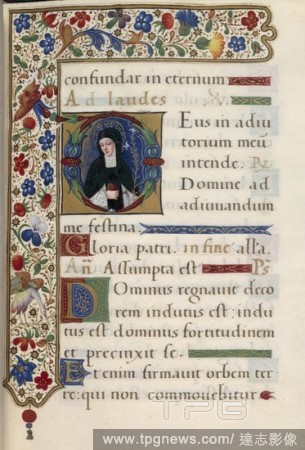 confundar in eternum
Ad laudes V.
Deus in adiu
torium meū
intende. Rz
Domine ad
adiuvandum
me festina.
Gloria patri. in fine alla.
Añ Assumpta est Ps
Dominus regnavit deco
rem indutus est: indu
tus est dominus fortitudinem
et precinxit se.
Etenim firmavit orbem ter
re: qui non commovebitur
TPG
www.tpgnews.com/ 達志影像